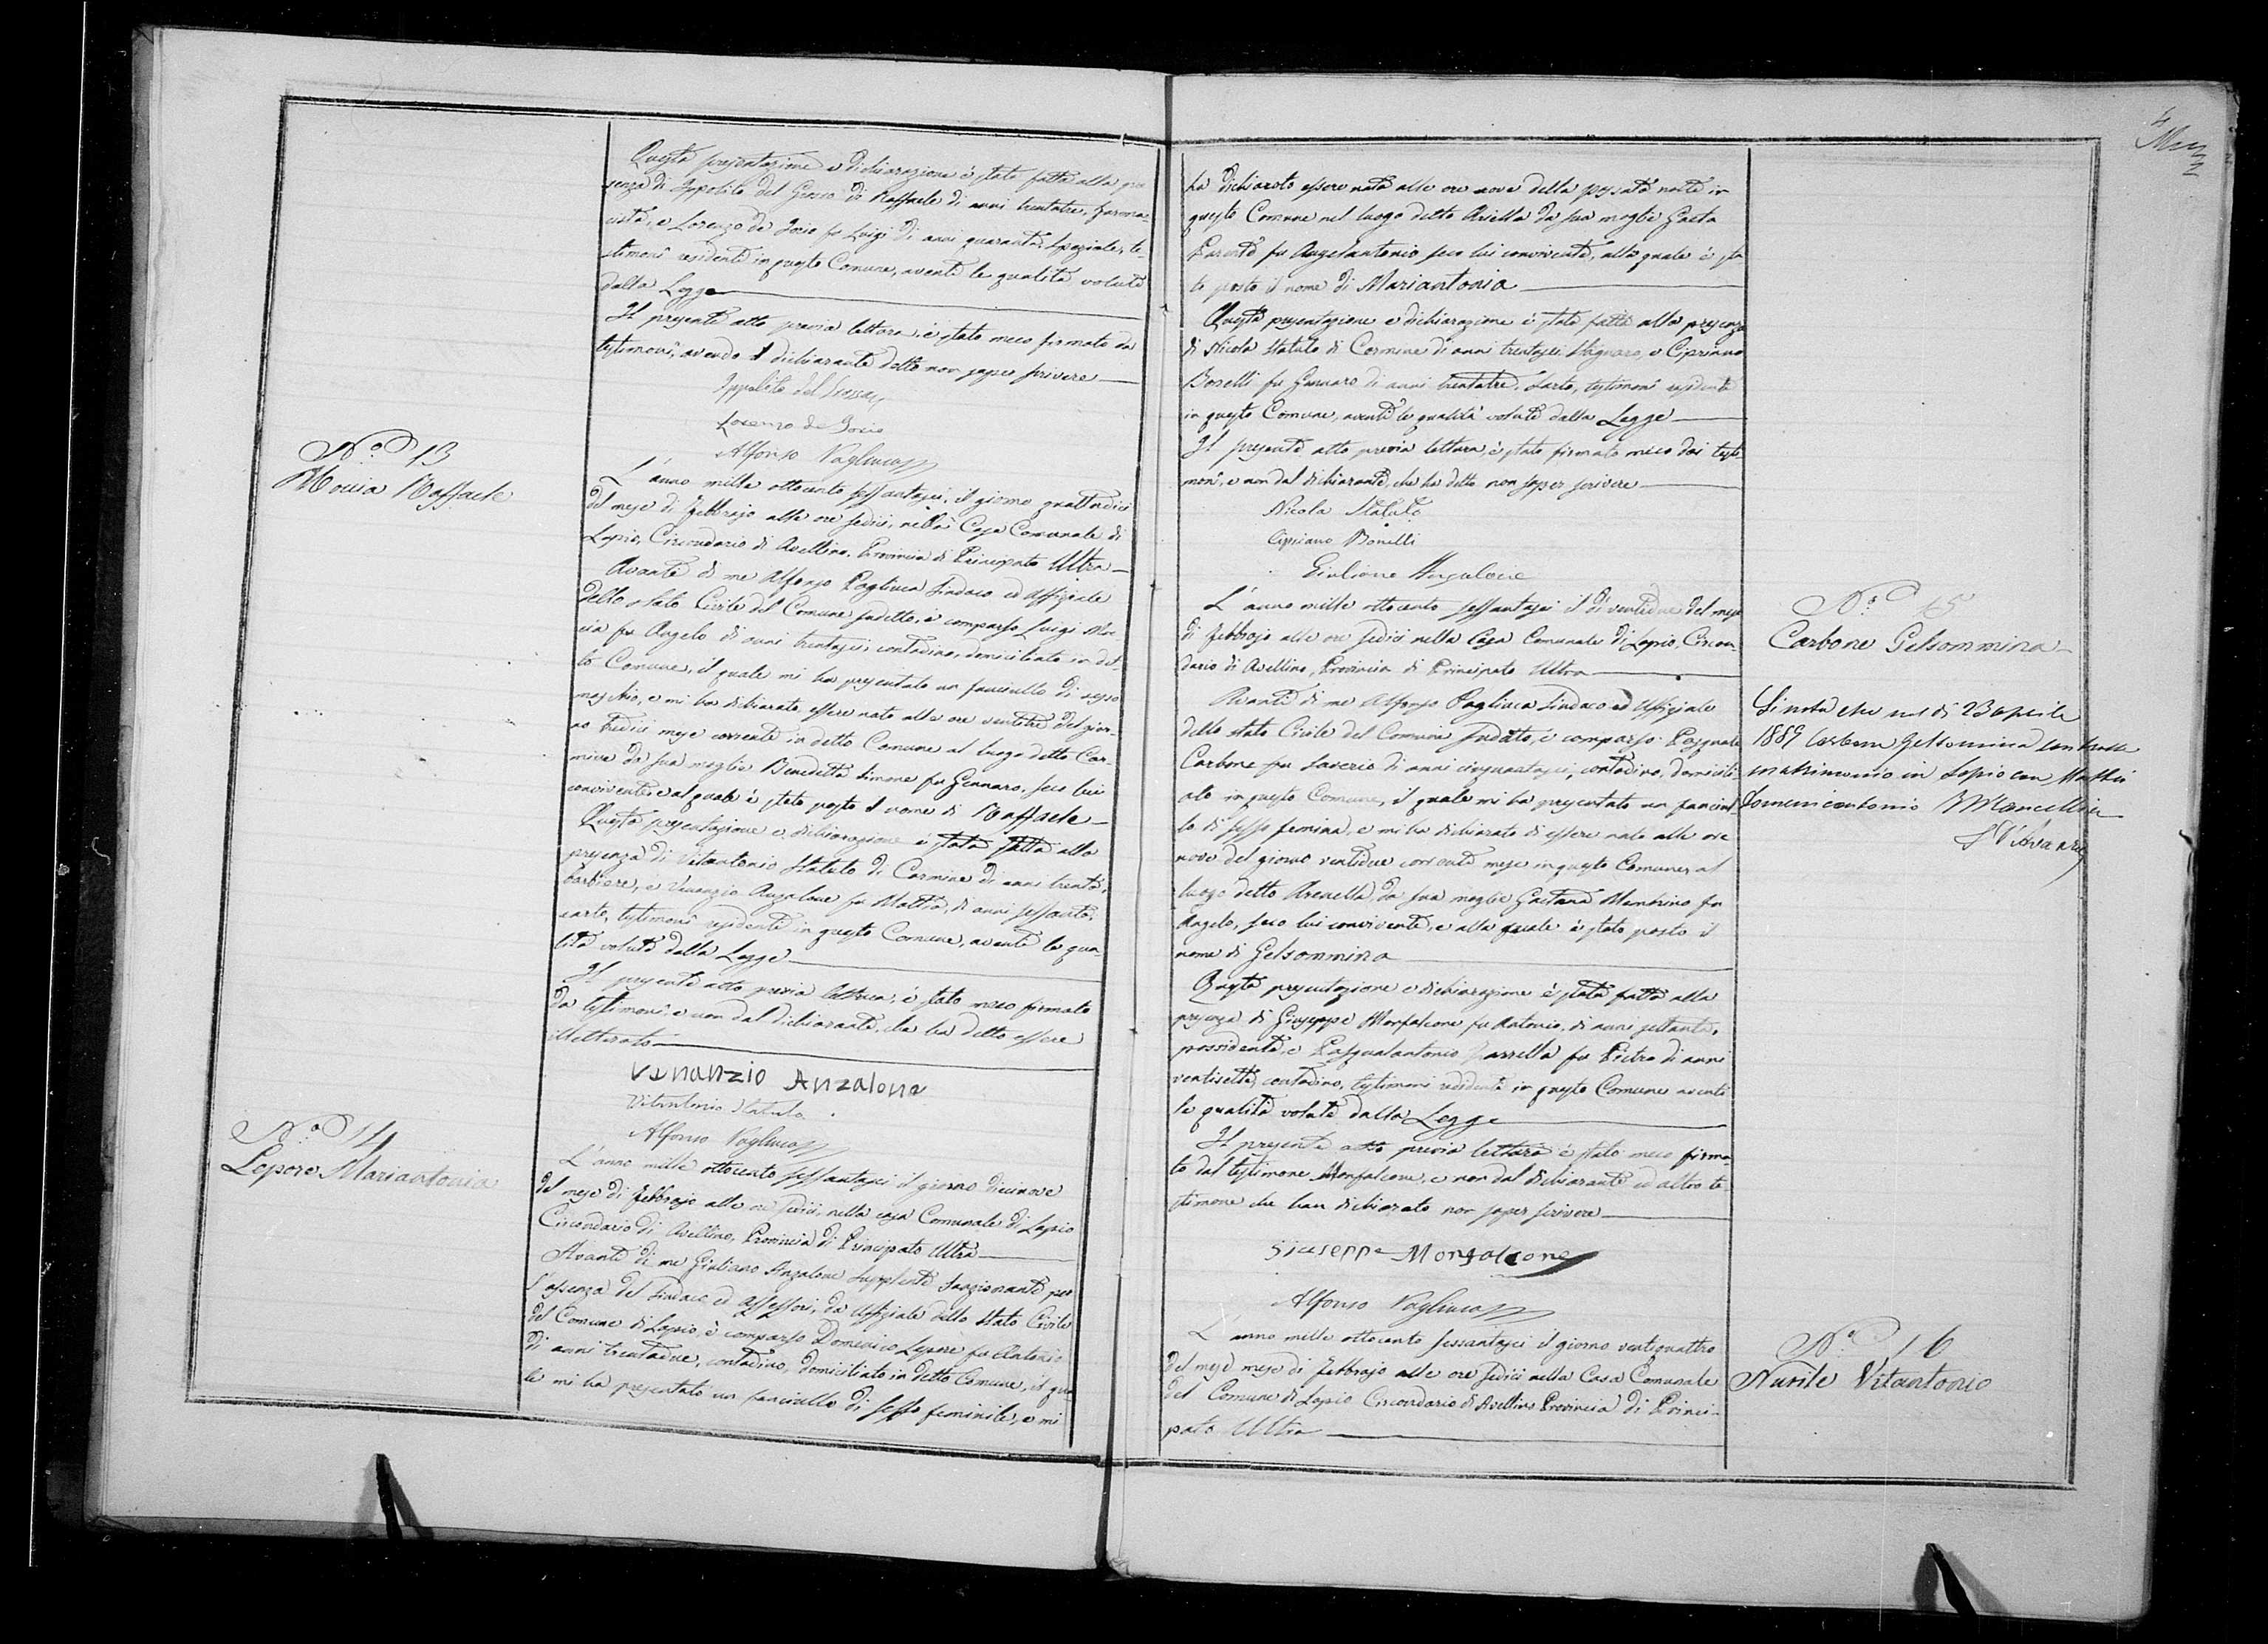 Questa presentazione e dichiarazione è stata fatta alla pre
senza di Ippolito del Grosso di Raffaele di anni trentatre, farma-
cista, e Lorenzo de Iorio fu Luigi di anni quaranta, speziale, te-
stimoni residenti in questo Comune, aventi le qualità volute
dalla Legge
Il presente atto previa lettura, è stato meco firmato da
testimoni, avendo il dichiarante detto non saper scrivere
Ippolito del Grosso
Lorenzo de Iorio
Alfonso Pagliuca
N.o 13
Moccia Raffaele
L'anno mille ottocento sessantasei, il giorno quattordici
del mese di Febbrajo alle ore sedici, nella Casa Comunale di
Lapio, Circondario di Avellino, Provincia di Principato Ultra
Avanti di me Alfonso Pagliuca Sindaco ed Uffiziale
dello stato Civile del Comune sudetto, è comparso Luigi Moc-
cia fu Angelo di anni trentasei, contadino, domiciliato in det-
to Comune, il quale mi ha presentato un fanciullo di sesso
maschio, e mi ha dichiarato essere nato alle ore ventitre del gior-
no tredici mese corrente in detto Comune al luogo detto Car-
mine da sua moglie Benedetta Simone fu Gennaro, seco lui
convivente e al quale è stato posto il nome di Raffaele
Questa presentazione e dichiarazione è stata fatta alla
presenza di Vitantonio Statuto di Carmine di anni trenta,
barbiere, e Venanzio Anzalone fu Mattia, di anni sessanta,
sarto, testimoni residenti in questo Comune, aventi le qua-
lità volute dalla Legge
Il presente atto previa lettura, è stato meco firmato
da testimoni, e non dal dichiarante, che ha detto essere
illetterato
Venanzio Anzalone
Vitantonio Statuto
Alfonso Pagliuca
N.o 14
Lepore Mariantonia
L'anno mille ottocento sessantasei il giorno diecinove
del mese di Febbrajo alle ore sedici, nella casa Comunale di Lapio
Circondario di Avellino, Provincia di Principato Ultra
Avanti di me Giuliano Anzalone Supplente funzionante per
l'assenza del Sindaco ed Assessori, da Uffiziale dello Stato Civile
del Comune di Lapio, è comparso Domenico Lepore fu Antonio
di anni trentadue, contadino, domiciliato in detto Comune, il qua
le mi ha presentato un fanciullo di sesso feminile, e mi
ha dichiarato essere nata alle ore nove della passata notte in
questo Comune nel luogo detto Ariella da sua moglie Gaeta
fu Angelantonio seco lui convivente, alla quale è sta
to posto il nome di Mariantonia
Questa presentazione e dichiarazione è stata fatta alla presenza
di Nicola Statuto di Carmine di anni trentasei, e Cipriano
Bonelli fu Gennaro di anni trentatre, sarto, testimoni residenti
in questo Comune, aventi le qualità volute dalla Legge
Il presente atto previa lettura, è stato firmato meco dai testi-
moni, e non dal dichiarante, che ha detto non saper scrivere
Nicola Statuto
Cipriano Bonelli
Giuliano Anzalone
N.o 15
Carbone Gelsommina
L'anno mille ottocento sessantasei il dì ventidue del mese
di Febbrajo alle ore sedici nella Casa Comunale di Lapio, Circon
dario di Avellino, Provincia di Principato Ultra
Avanti di me Alfonso Pagliuca Sindaco ed Uffiziale
dello stato Civile del Comune sudetto, è comparso Pasquale
Carbone fu Saverio di anni cinquantasei, contadino, domicili
ato in questo Comune, il quale mi ha presentato un fanciul
lo di sesso femina, e mi ha dichiarato di essere nato alle ore
nove del giorno ventidue corrente mese in questo Comune al
luogo detto Arenella, da sua moglie Gaetana fu
Angelo, seco lui convivente, e alla quale è stato posto il
nome di Gelsommina
Questa presentazione e dichiarazione è stata fatta alla
presenza di Giuseppe Monfalcone fu Antonio, di anni settanta,
possidente, e Pasqualantonio fu Pietro di anni
ventisette, contadino, testimoni residenti in questo Comune aventi
le qualità volute dalla Legge
Il presente atto previa lettura è stato meco firma-
to dal testimone Monfalcone, e non dal dichiarante ed altro te-
stimone che han dichiarato non saper scrivere
Giuseppe Monfalcone
Alfonso Pagliuca
Si nota che nel dì 23 aprile
1889 Carbone Gelsomina contrasse
matrimonio in Lapio con
Domenicantonio
N.o 16
Nurile Vitantonio
L'anno mille ottocento sessantasei il giorno ventiquattro
del mese mese di Febbrajo alle ore sedici nella Casa Comunale
del Comune di Lapio Circondario di Avellino Provincia di Princi-
pato Ultra